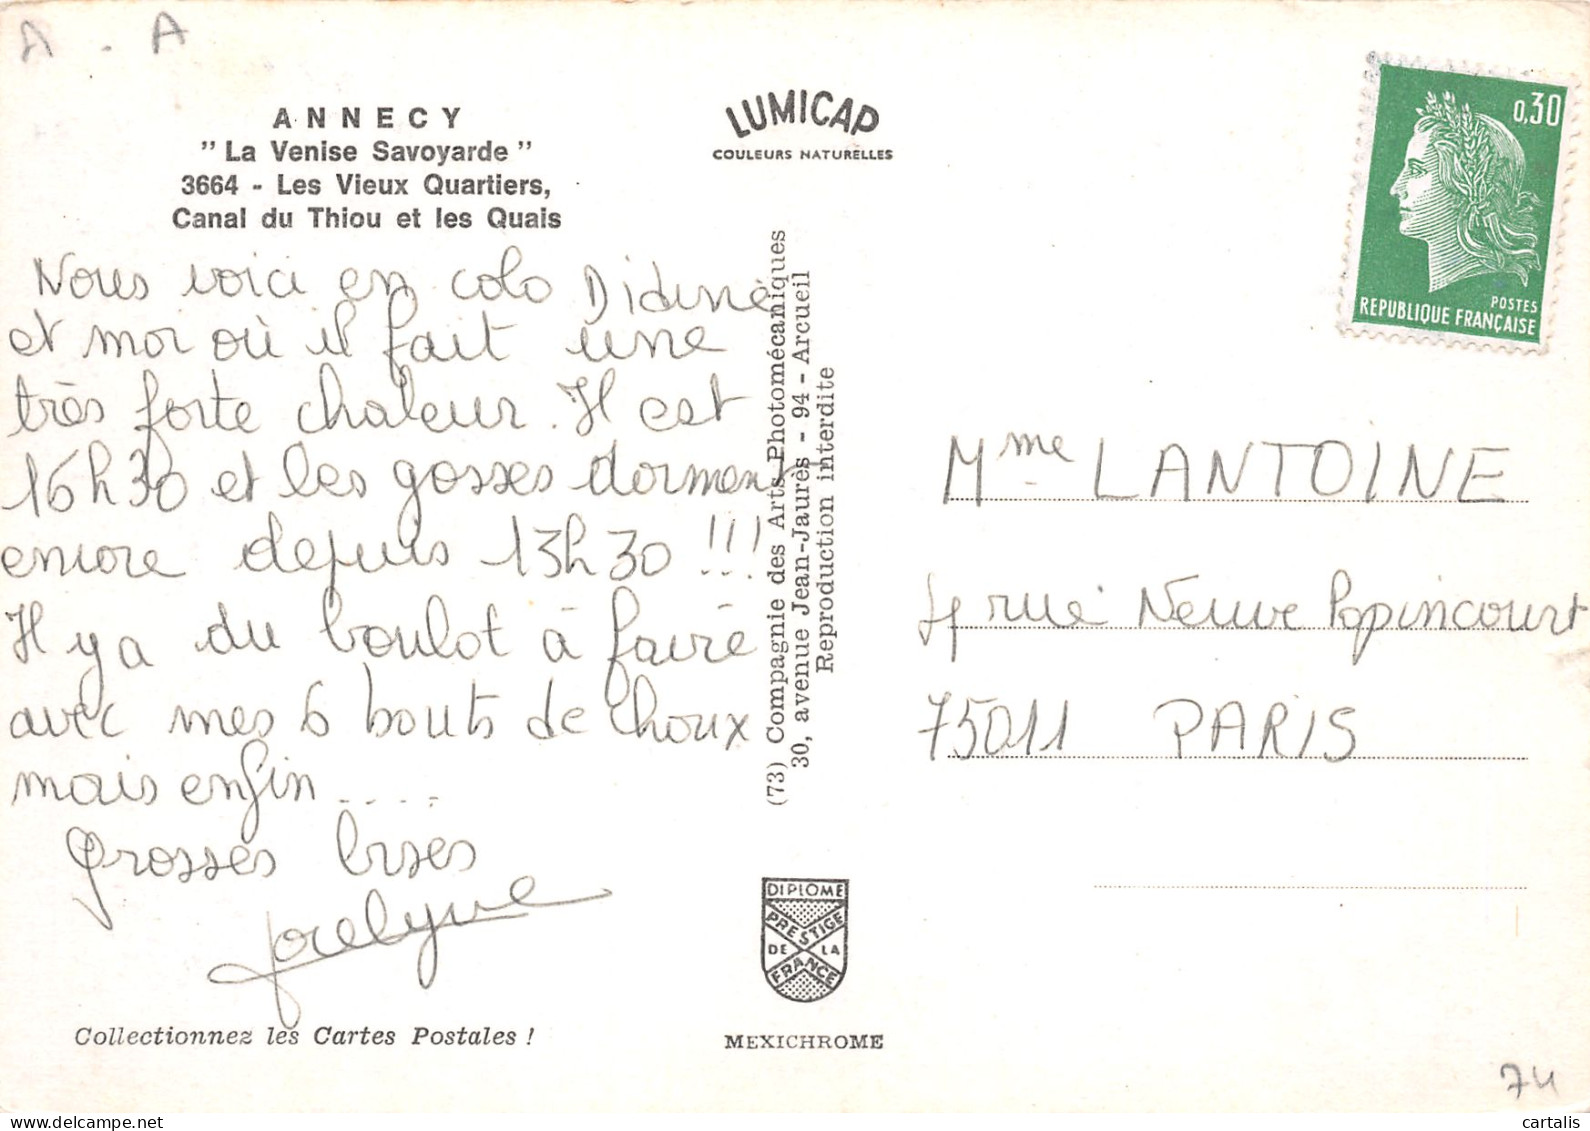 A . A
ANNECY
" La Venise Savoyarde "
3664 - Les Vieux Quartiers,
Canal du Thiou et les Quais
Nous voici en colo Didine
et moi où il fait une
très forte chaleur. Il est
16h30 et les gosses dorment
encore depuis 13h30 !!!
Il y a du boulot à faire
avec mes 6 bouts de choux
mais enfin .....
Grosses bises
Jocelyne
Collectionnez les Cartes Postales !
LUMICAP
COULEURS NATURELLES
(73) Compagnie des Arts Photomécaniques
30, avenue Jean-Jaurès - 94 - Arcueil
Reproduction interdite
DIPLOME
PRESTIGE
DE LA
FRANCE
MEXICHROME
0,30
POSTES
REPUBLIQUE FRANÇAISE
Mme LANTOINE
4 rue Neuve Popincourt
75011 PARIS
74
cartalis